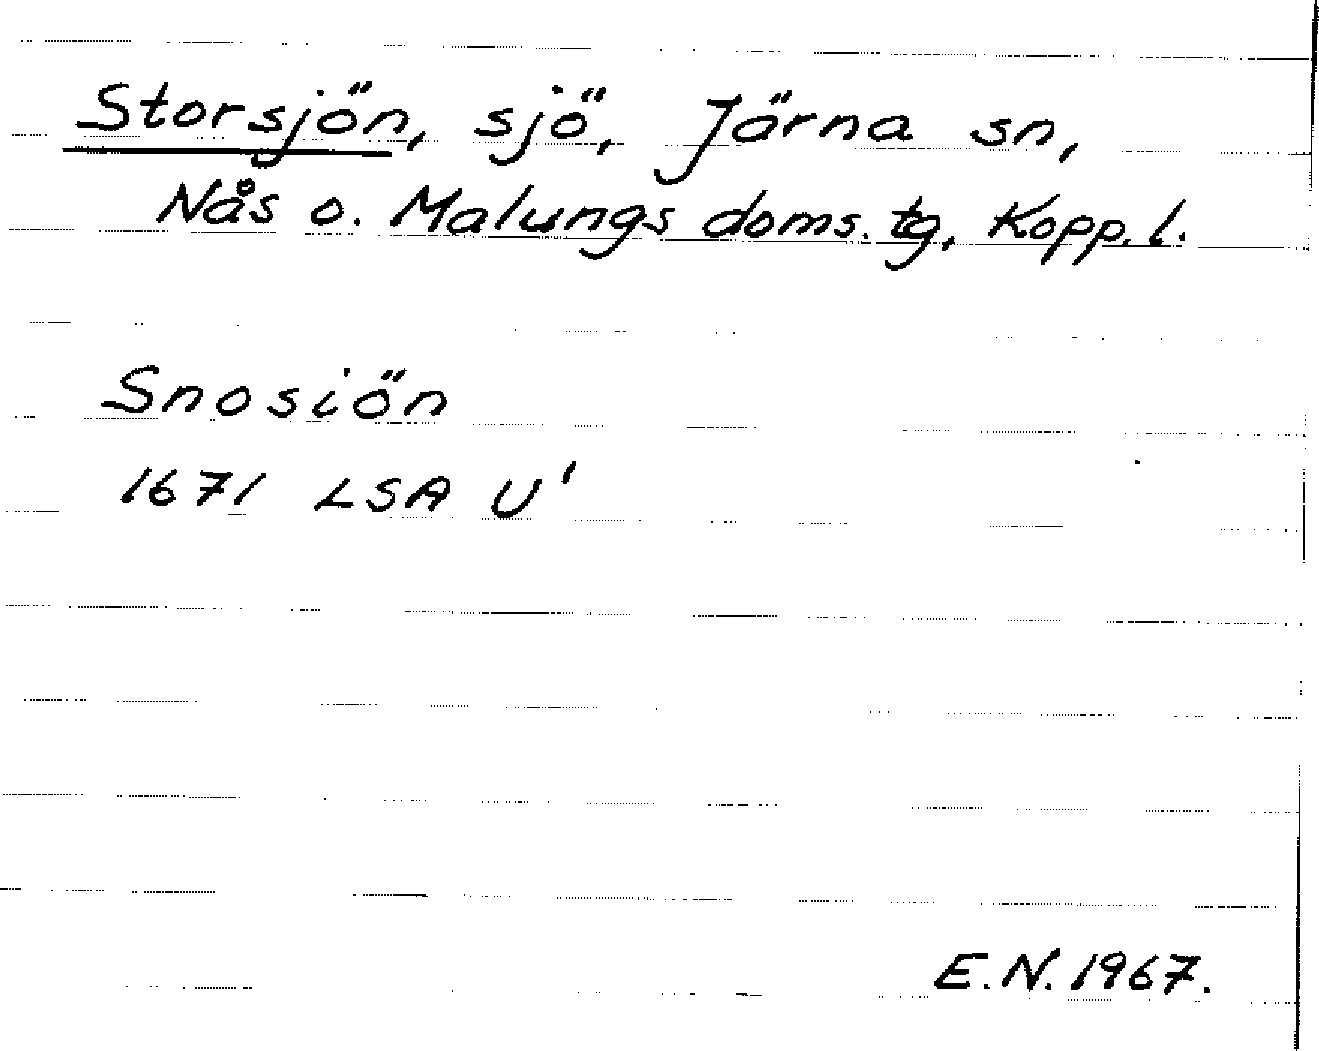 Storsjön, sjö, Järna sn,
Nås o. Malungs doms. tg, Kopp. l.
Snosiön
1671 LSA U'
E.N. 1967.